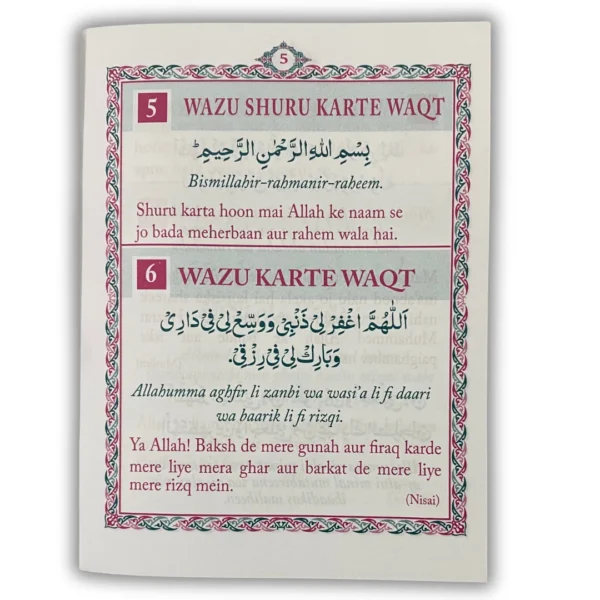 5
5 WAZU SHURU KARTE WAQT
بِسْمِ اللهِ الرَّحْمٰنِ الرَّحِيْمِ ؕ
Bismillahir-rahmanir-raheem.
Shuru karta hoon mai Allah ke naam se
jo bada meherbaan aur rahem wala hai.
6 WAZU KARTE WAQT
اَللّٰهُمَّ اغْفِرْ لِيْ ذَنْبِيْ وَوَسِّعْ لِيْ فِيْ دَارِيْ
وَبَارِكْ لِيْ فِيْ رِزْقِيْ.
Allahumma aghfir li zanbi wa wasi'a li fi daari
wa baarik li fi rizqi.
Ya Allah! Baksh de mere gunah aur firaq karde
mere liye mera ghar aur barkat de mere liye
mere rizq mein.
(Nisai)